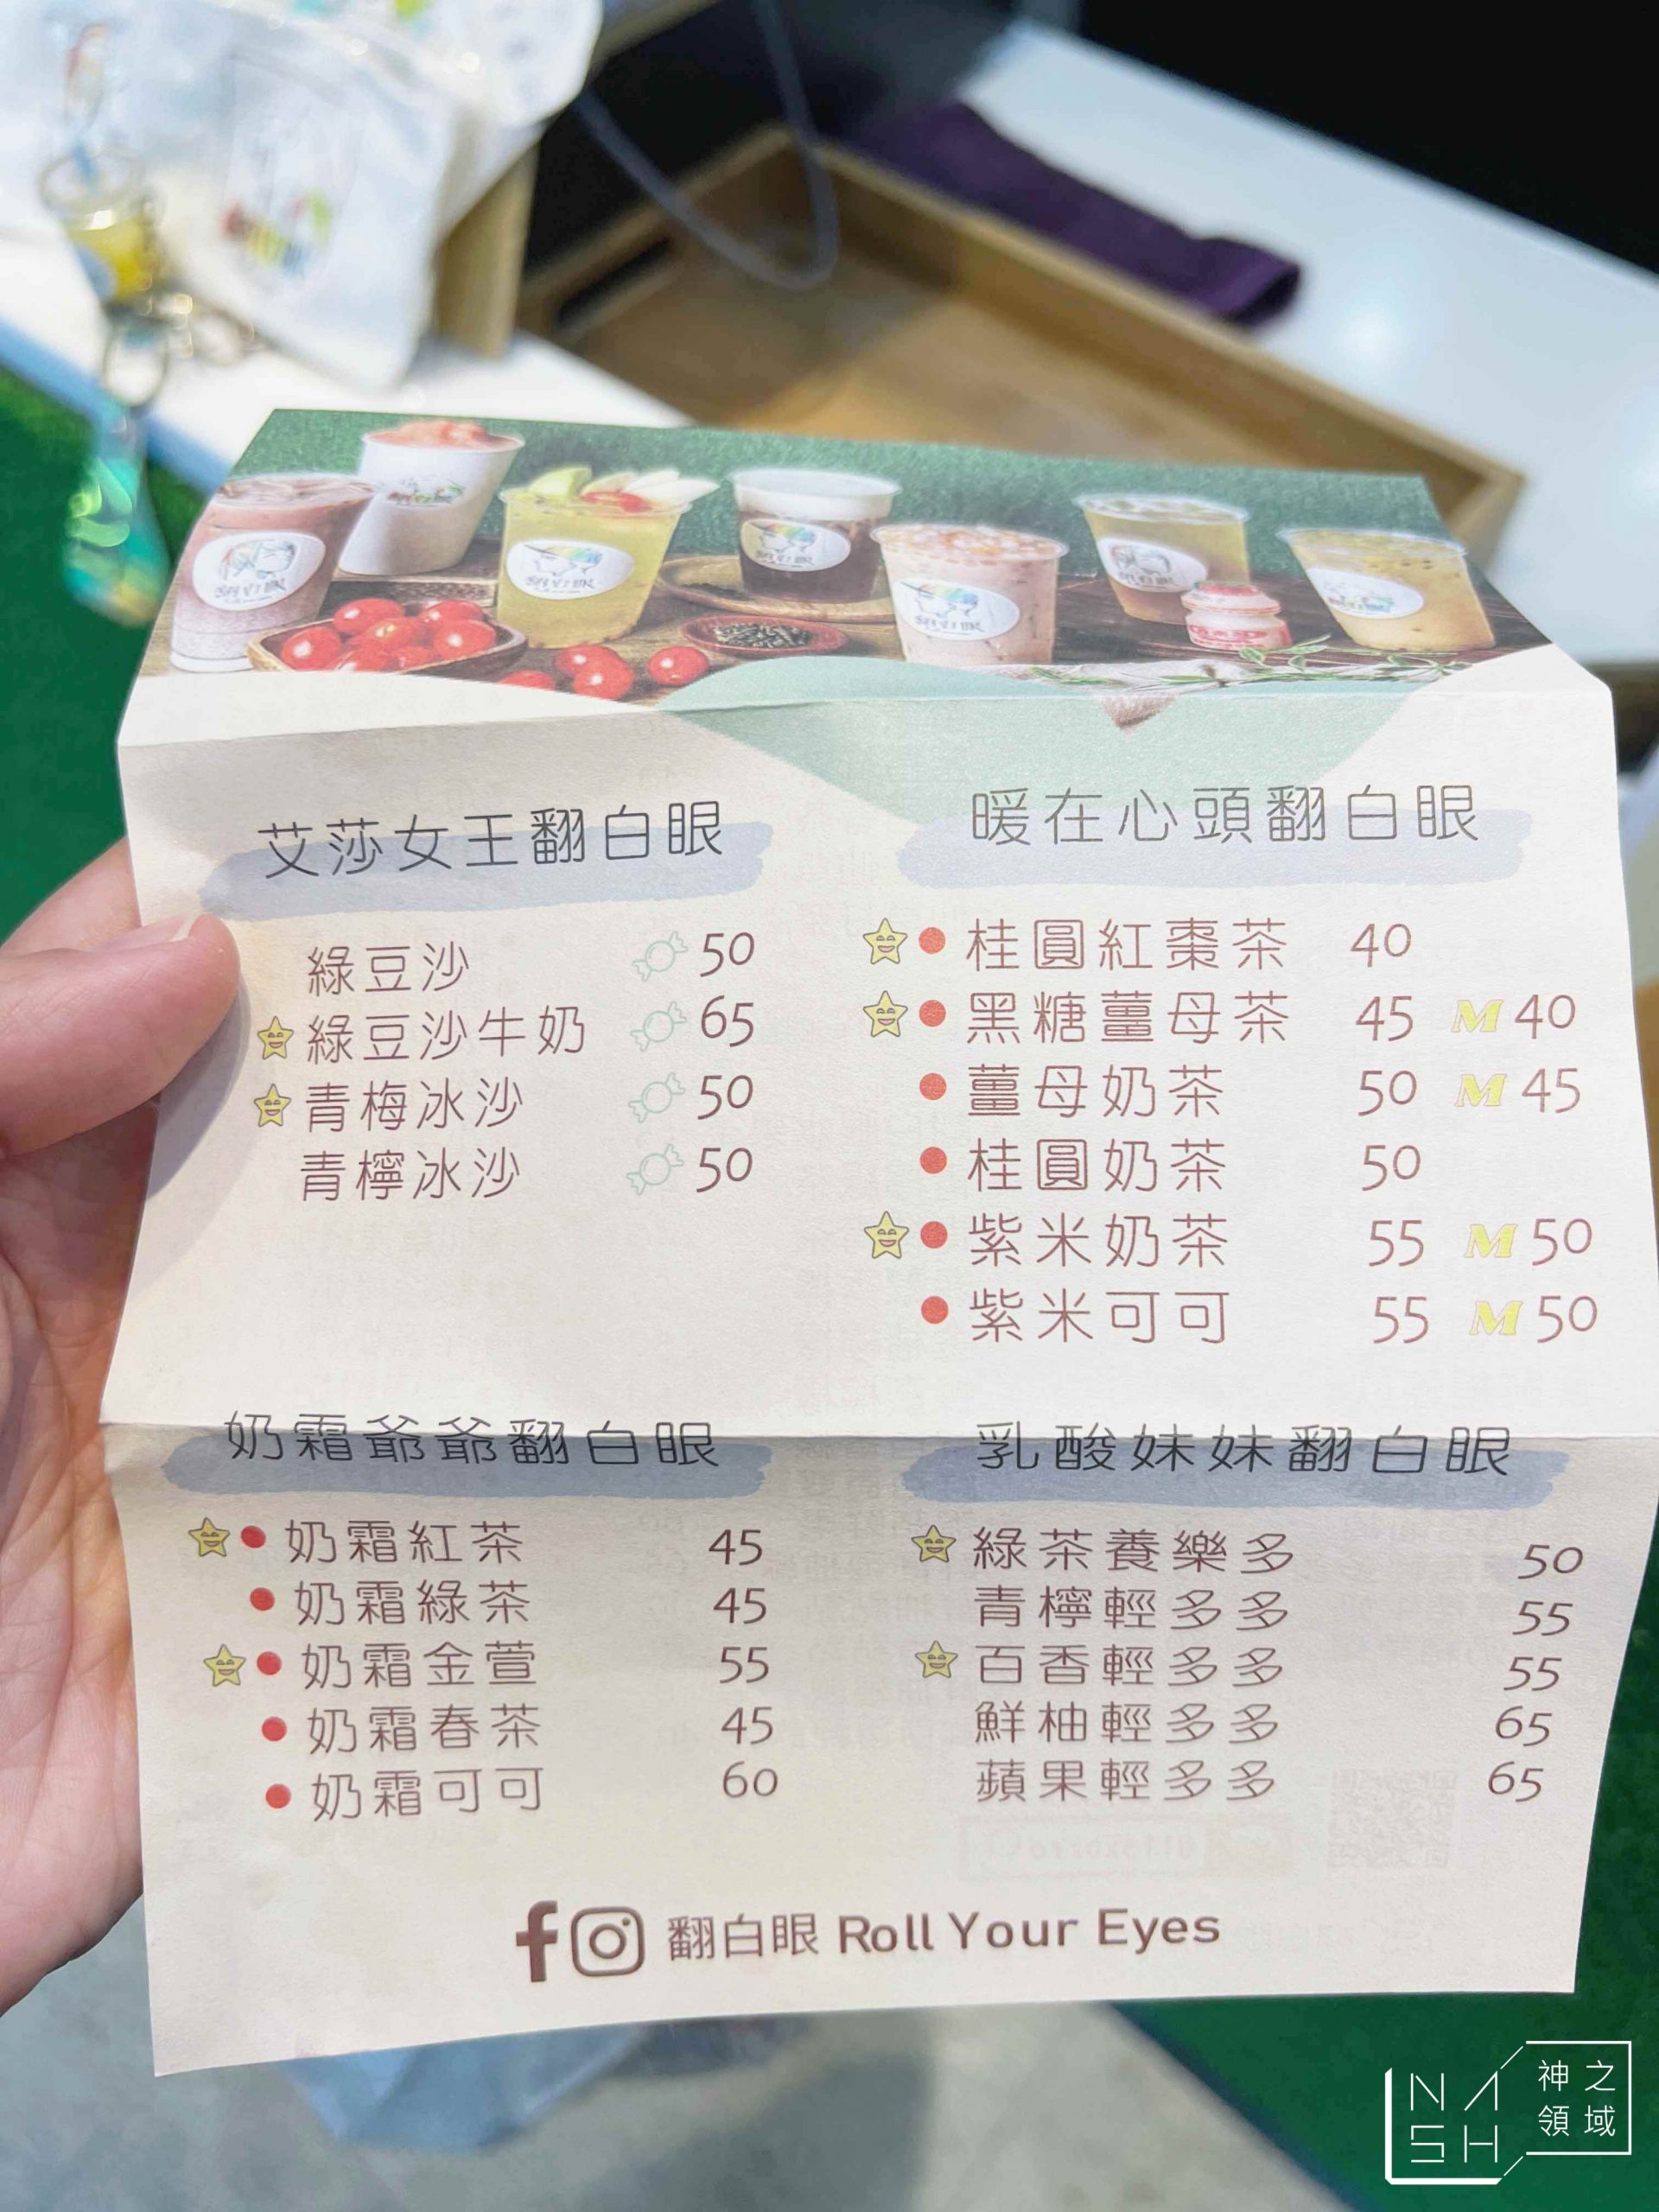 艾莎女王翻白眼
綠豆沙 50
綠豆沙牛奶 65
青梅冰沙 50
青檸冰沙 50
暖在心頭翻白眼
桂圓紅棗茶 40
黑糖薑母茶 45 M 40
薑母奶茶 50 M 45
桂圓奶茶 50
紫米奶茶 55 M 50
紫米可可 55 M 50
奶霜爺爺翻白眼
奶霜紅茶 45
奶霜綠茶 45
奶霜金萱 55
奶霜春茶 45
奶霜可可 60
乳酸妹妹翻白眼
綠茶養樂多 50
青檸輕多多 55
百香輕多多 55
鮮柚輕多多 65
蘋果輕多多 65
翻白眼 Roll Your Eyes
NASH
神之
領域